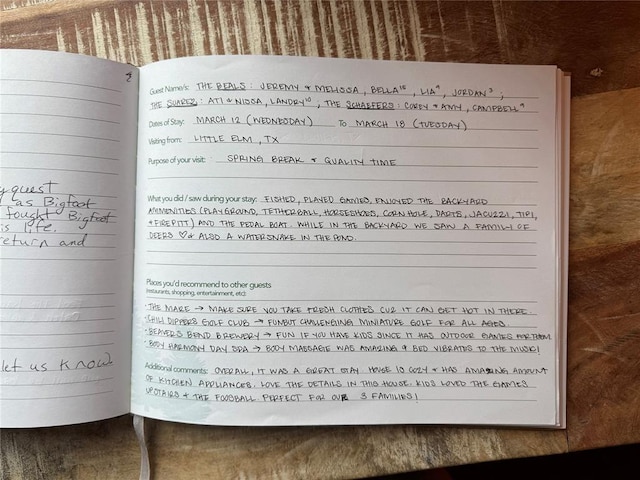 y guest
as Bigfoot
fought Bigfoot
is life.
eturn and
let us know
Guest Name/s: THE BEALS: JEREMY & MELISSA, BELLA 15, LIA 9, JORDAN 3;
THE SUAREZ: ATI & NISSA, LANDRY 10, THE SCHAEFERS: COREY & AMY, CAMPBELL 9
Dates of Stay: MARCH 12 (WEDNESDAY) To MARCH 18 (TUESDAY)
Visiting from: LITTLE ELM, TX
Purpose of your visit: SPRING BREAK & QUALITY TIME
What you did / saw during your stay: FISHED, PLAYED GAMES, ENJOYED THE BACKYARD
AMMENITIES (PLAYGROUND, TETHERBALL, HORSESHOES, CORN HOLE, DARTS, JACUZZI, TIPI,
& FIREPITT) AND THE PEDAL BOAT. WHILE IN THE BACKYARD WE SAW A FAMILY OF
DEERS ♡ & ALSO A WATERSNAKE IN THE POND.
Places you'd recommend to other guests
(restaurants, shopping, entertainment, etc):
· THE MAZE → MAKE SURE YOU TAKE FRESH CLOTHES CUZ IT CAN GET HOT IN THERE.
· CHILI DIPPERS GOLF CLUB → FUN BUT CHALLENGING MINIATURE GOLF FOR ALL AGES.
· BEAVERS BEND BREWERY → FUN IF YOU HAVE KIDS SINCE IT HAS OUTDOOR GAMES FOR THEM.
· BODY HARMONY DAY SPA → BODY MASSAGE WAS AMAZING & BED VIBRATES TO THE MUSIC!
Additional comments: OVERALL, IT WAS A GREAT STAY. HOUSE IS COZY & HAS AMAZING AMOUNT
OF KITCHEN APPLIANCES. LOVE THE DETAILS IN THIS HOUSE. KIDS LOVED THE GAMES
UPSTAIRS & THE FOOSBALL. PERFECT FOR OUR 3 FAMILIES!